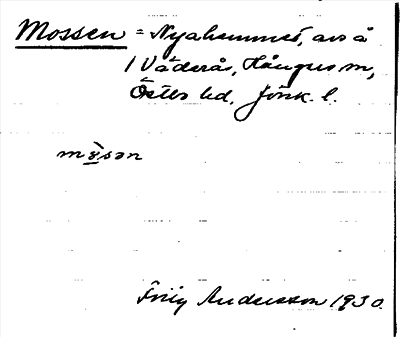 Mossen = Nyahemmet, avs å
1 Väderås, Hångers m,
Östbo hd, Jönk. l.
mo̱sən
Frig Andersson 1930.